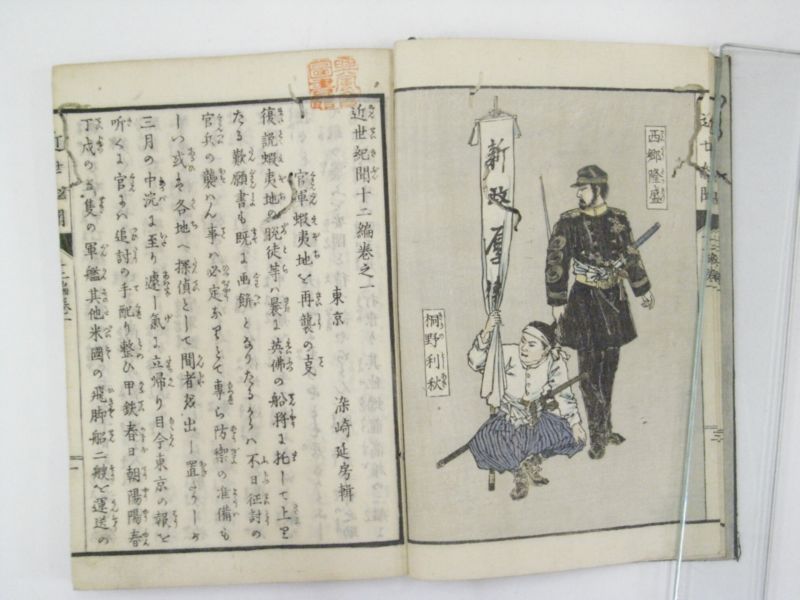 西郷隆盛
新政厚
桐野利秋
近世紀聞十二編巻之一
東京 染崎延房輯
官軍蝦夷地を再襲の支
復説蝦夷地の脱徒等ハ曩に英佛の船将に托して上り
たる歎願書も既に画餅となりたるからハ不日征討の
官兵の襲はん事ハ必定なりとて専ら防禦の准備も
しつ或ハ各地へ探偵として間者を出し置しが
三月の中浣に至り遽し氣に立帰り目今東京の報を
听くに官にハ追討の手配り整ひ甲鉄春日朝陽陽春
丁戌の五隻の軍艦其他米國の飛脚船二艘を運送の
近世紀聞 十二編巻一